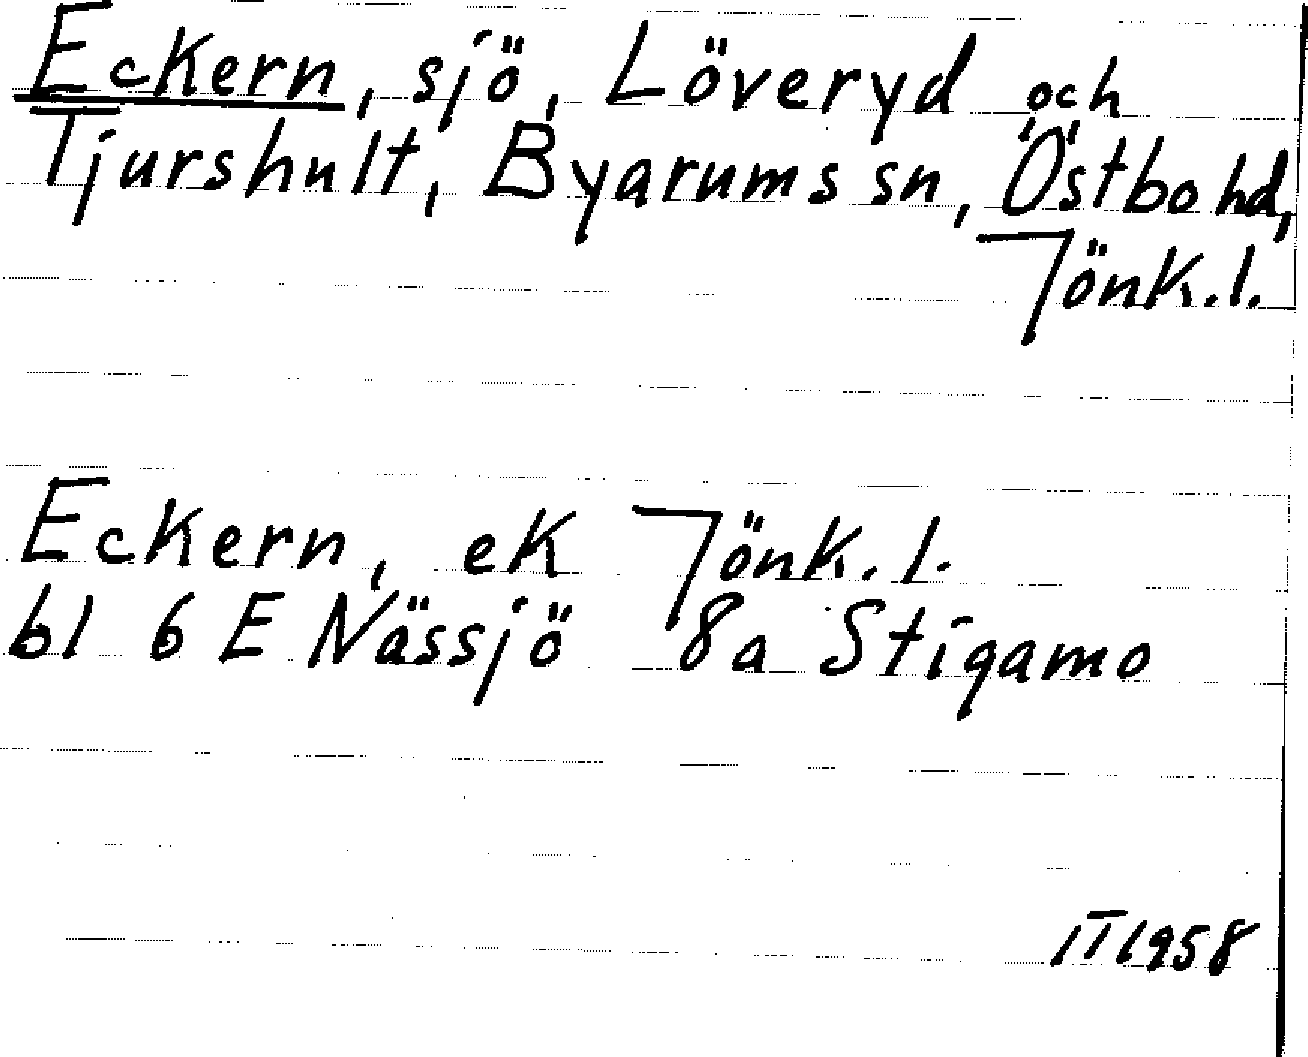 Eckern, sjö, Löveryd och
Tjurshult, Byarums sn, Östbo hd,
Jönk.l.
Eckern, ek Jönk.l.
bl 6 E Nässjö 8a Stigamo
IT 1958